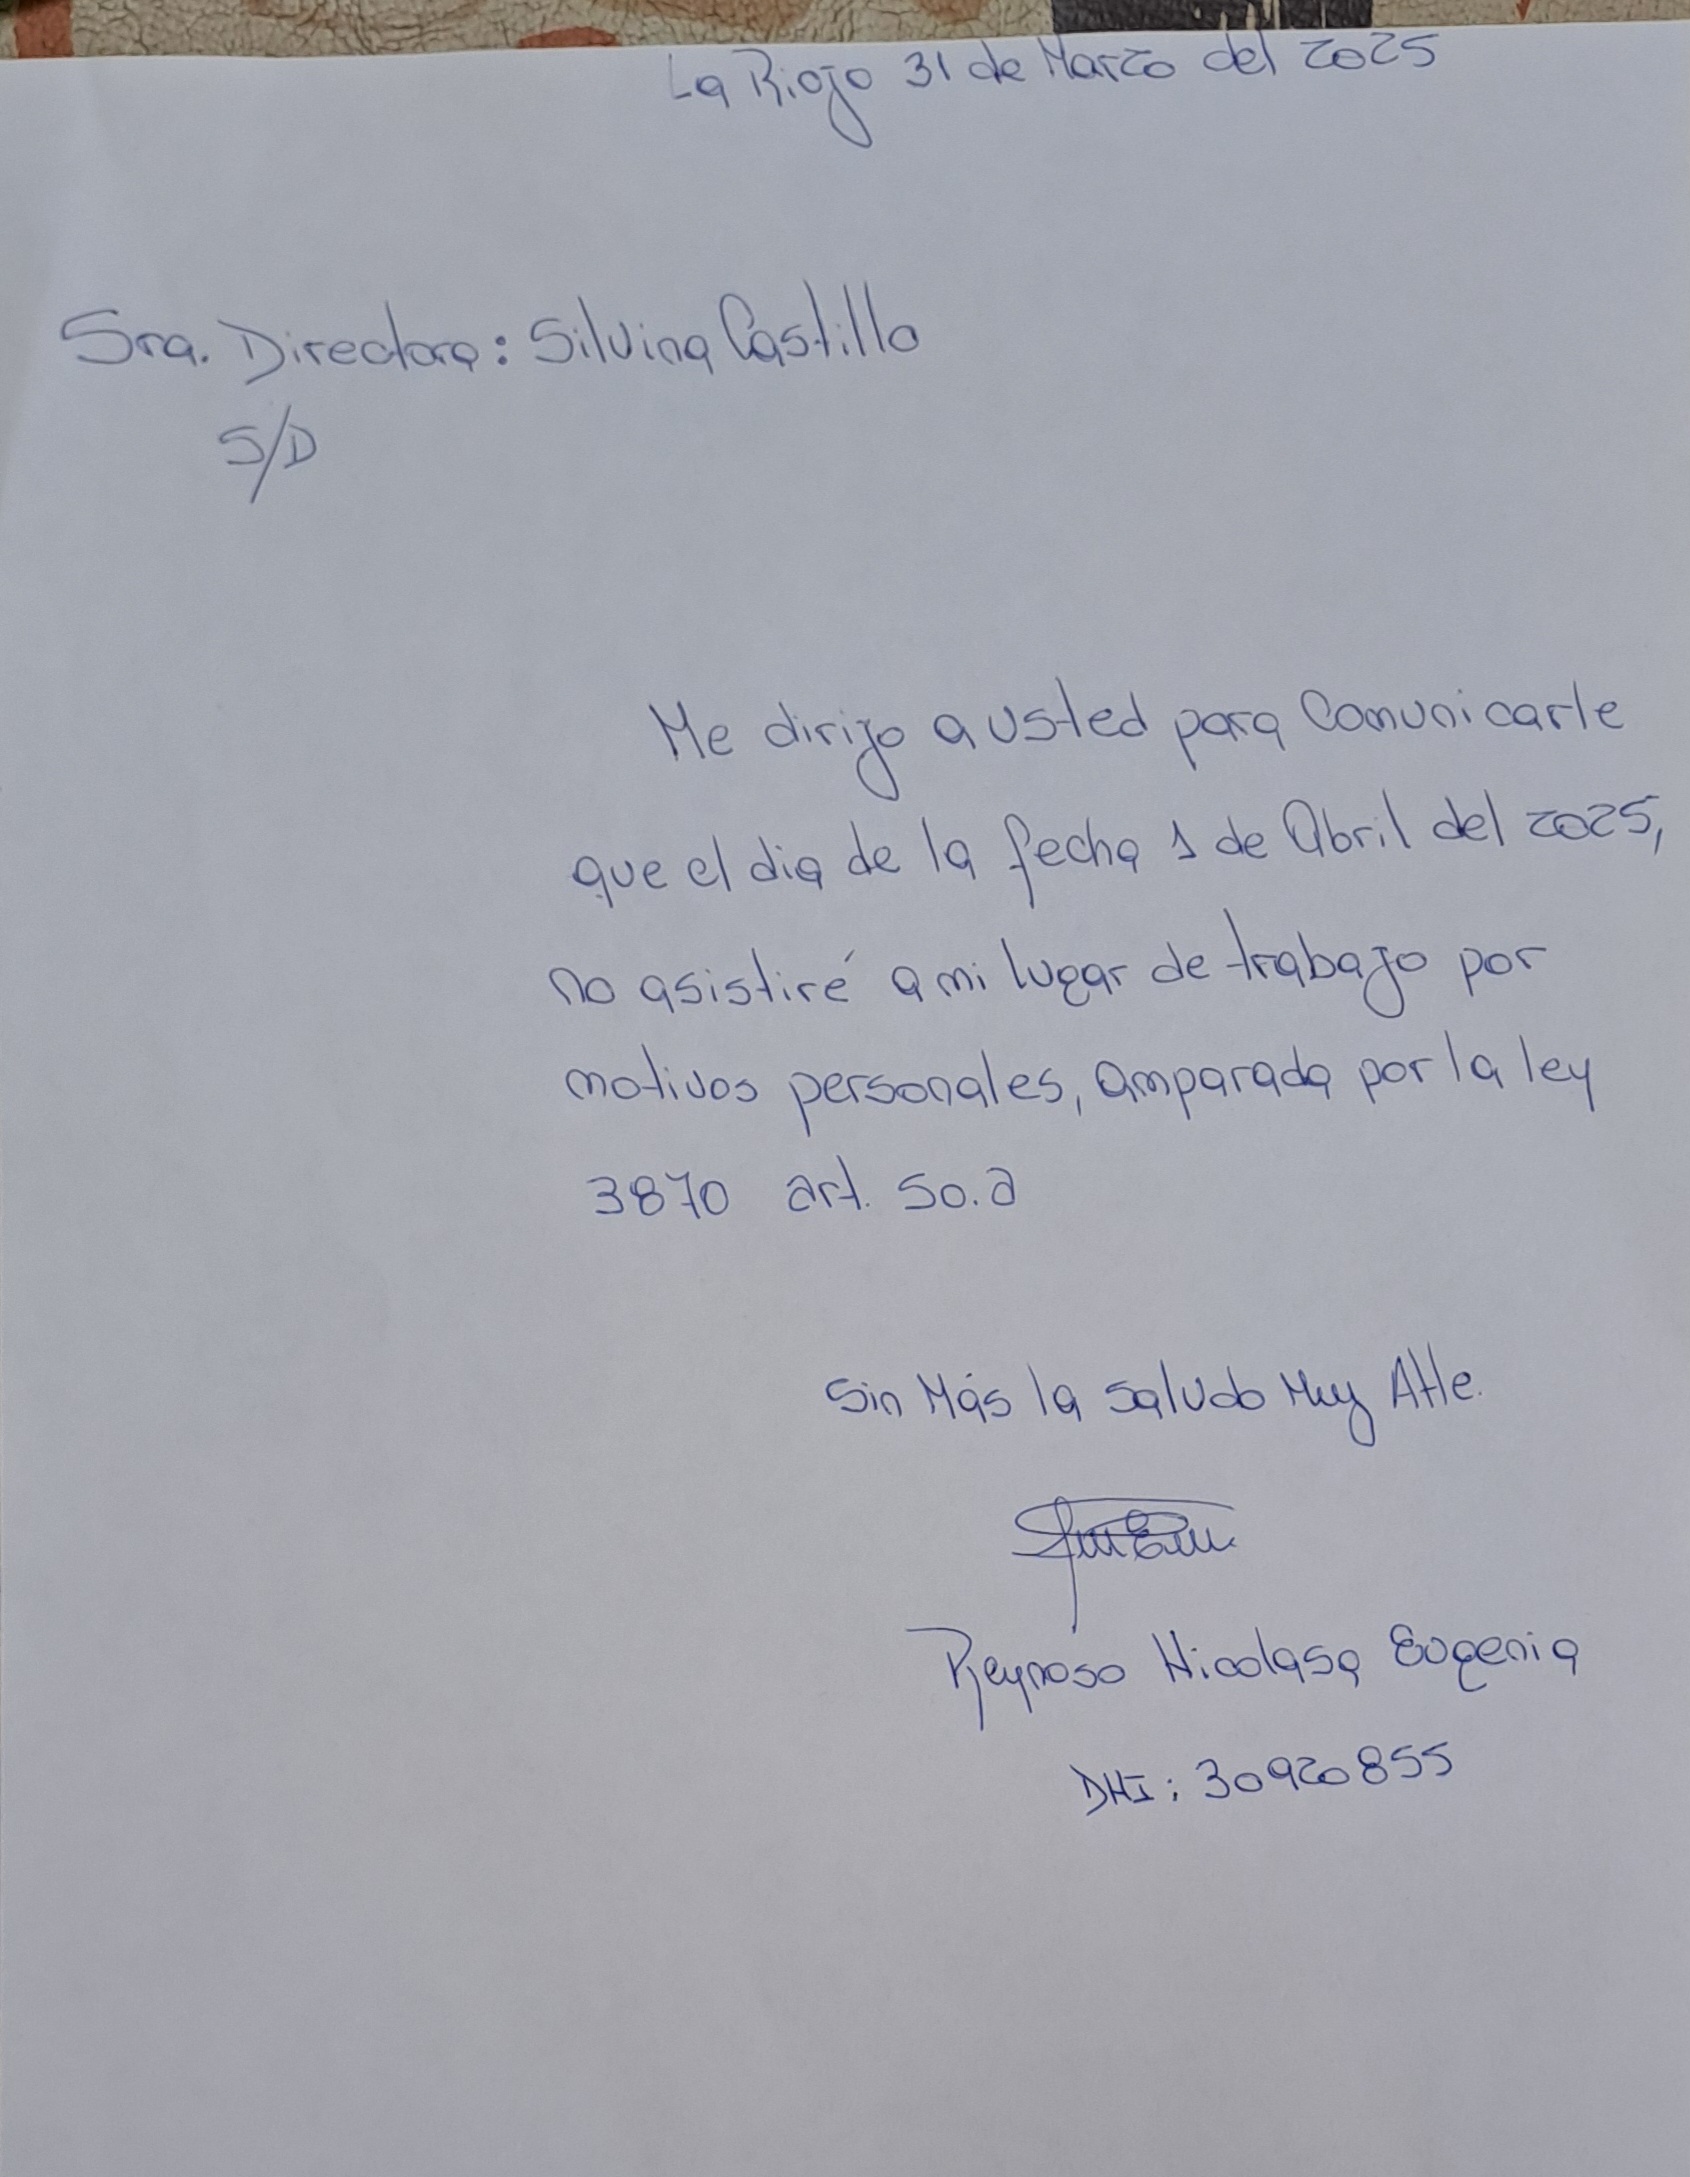 La Rioja 31 de Marzo del 2025
Sra. Directora: Silvina Castillo
S/D
Me dirijo a usted para Comunicarle
que el dia de la fecha 1 de Abril del 2025,
no asistiré a mi lugar de trabajo por
motivos personales, amparada por la ley
3870 art. 50.a
Sin Más la saludo Muy Atte.
Reynoso Nicolasa Eugenia
DNI: 30920855